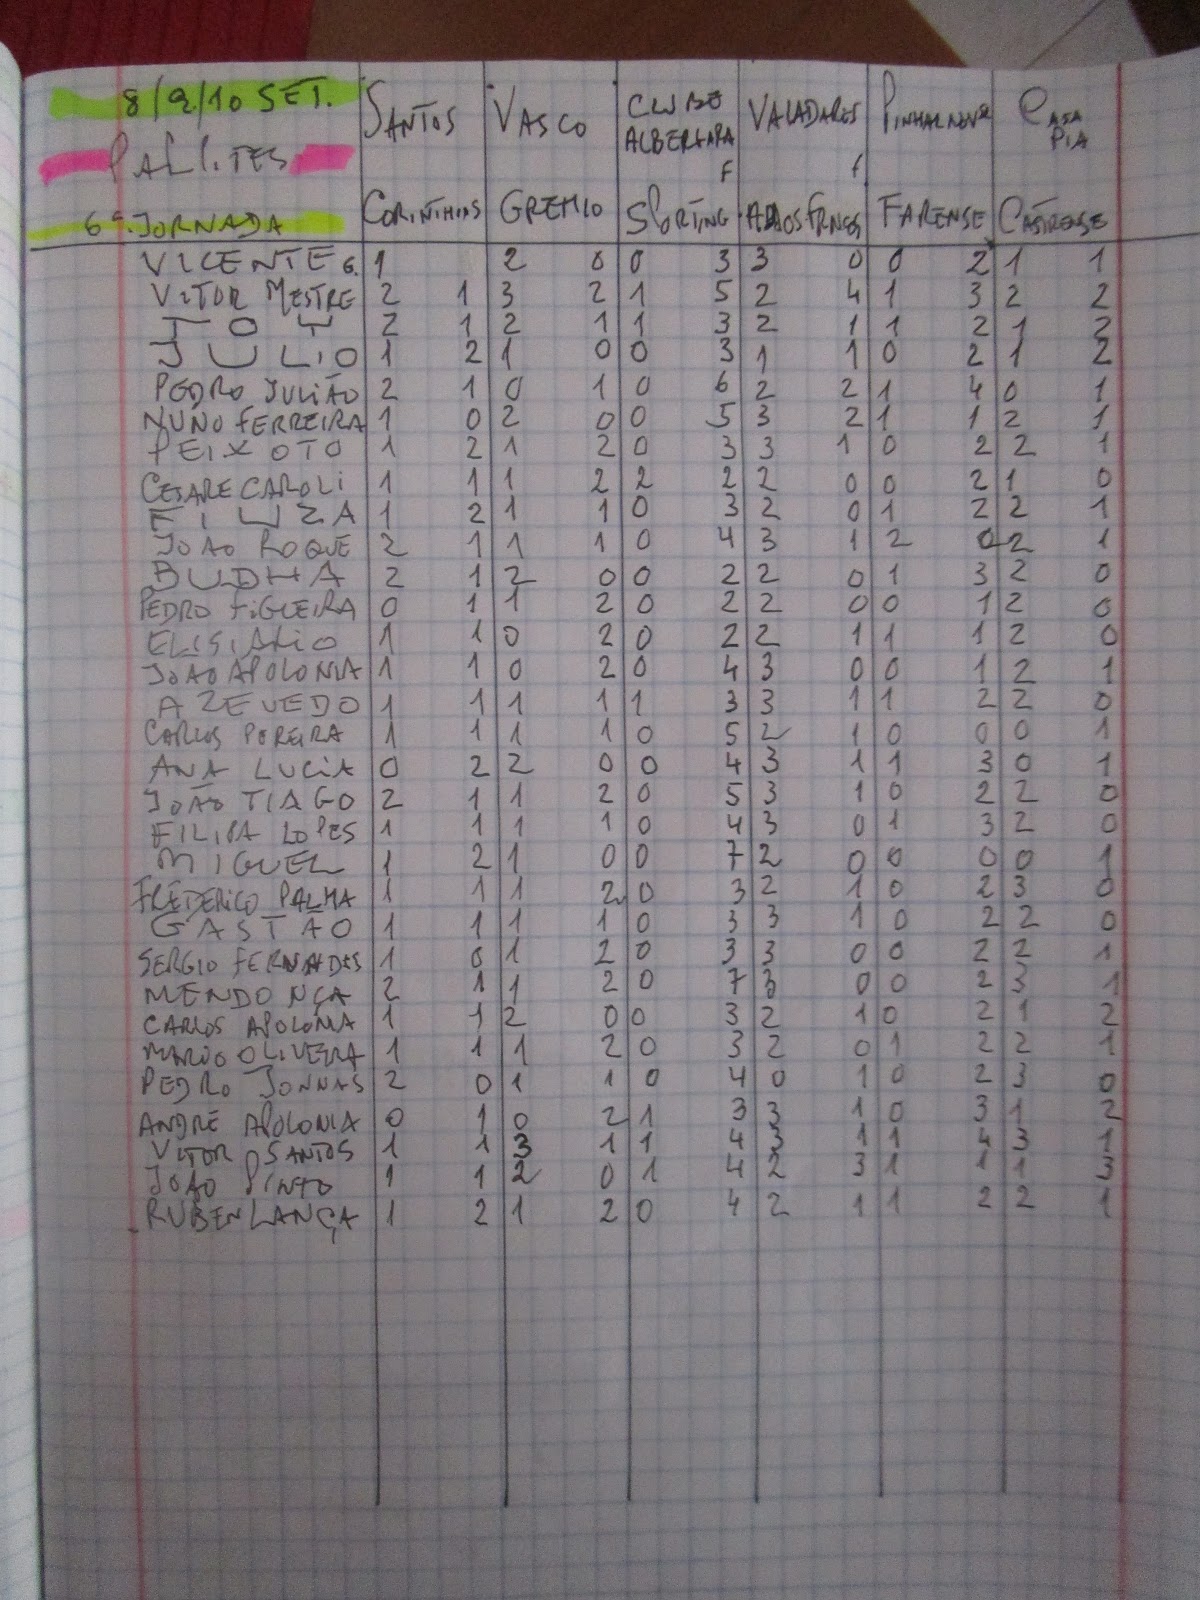 8/9/10 SET. SANTOS VASCO CLUBE ALBERGARIA F VALADARES f PINHALNOVE CASA PIA
PALPITES
6ª JORNADA CORINTHIAS GREMIO SPORTING FARENSE CASTRENSE
VICENTE G. 1 2 0 0 3 3 0 0 2 1 1
VITOR MESTRE 2 1 3 2 1 5 2 4 1 3 2 2
JOY 2 1 2 1 1 3 2 1 1 2 1 2
JULIO 1 2 1 0 0 3 1 1 0 2 1 2
PEDRO JULIÃO 2 1 0 1 0 6 2 2 1 4 0 1
NUNO FERREIRA 1 0 2 0 0 5 3 2 1 1 2 1
PEIXOTO 1 2 1 2 0 3 3 1 0 2 2 1
CESARE CAROLI 1 1 1 2 2 2 2 0 0 2 1 0
FIUZA 1 2 1 1 0 3 2 0 1 2 2 1
JOÃO ROQUE 2 1 1 1 0 4 3 1 2 0 2 1
BUDHA 2 1 2 0 0 2 2 0 1 3 2 0
PEDRO FIGUEIRA 0 1 1 2 0 2 2 0 0 1 2 0
ELISIARIO 1 1 0 2 0 2 2 1 1 1 2 0
JOÃO APOLONIA 1 1 0 2 0 4 3 0 0 1 2 1
AZEVEDO 1 1 1 1 1 3 3 1 1 2 2 0
CARLOS PEREIRA 1 1 1 1 0 5 2 1 0 0 0 1
ANA LUCIA 0 2 2 0 0 4 3 1 1 3 0 1
JOÃO TIAGO 2 1 1 2 0 5 3 1 0 2 2 0
FILIPA LOPES 1 1 1 1 0 4 3 0 1 3 2 0
MIGUEL 1 2 1 0 0 7 2 0 0 0 0 1
FREDERICO PALMA 1 1 1 2 0 3 2 1 0 2 3 0
GASTÃO 1 1 1 1 0 3 3 1 0 2 2 0
SERGIO FERNANDES 1 0 1 2 0 3 3 0 0 2 2 1
MENDONÇA 2 1 1 2 0 7 3 0 0 2 3 1
CARLOS APOLONIA 1 1 2 0 0 3 2 1 0 2 1 2
MARIO OLIVEIRA 1 1 1 2 0 3 2 0 1 2 2 1
PEDRO JONNAS 2 0 1 1 0 4 0 1 0 2 3 0
ANDRÉ APOLONIA 0 1 0 2 1 3 3 1 0 3 1 2
VITOR SANTOS 1 1 3 1 1 4 3 1 1 4 3 1
JOÃO PINTO 1 1 2 0 1 4 2 3 1 1 1 3
RUBEN LANÇA 1 2 1 2 0 4 2 1 1 2 2 1